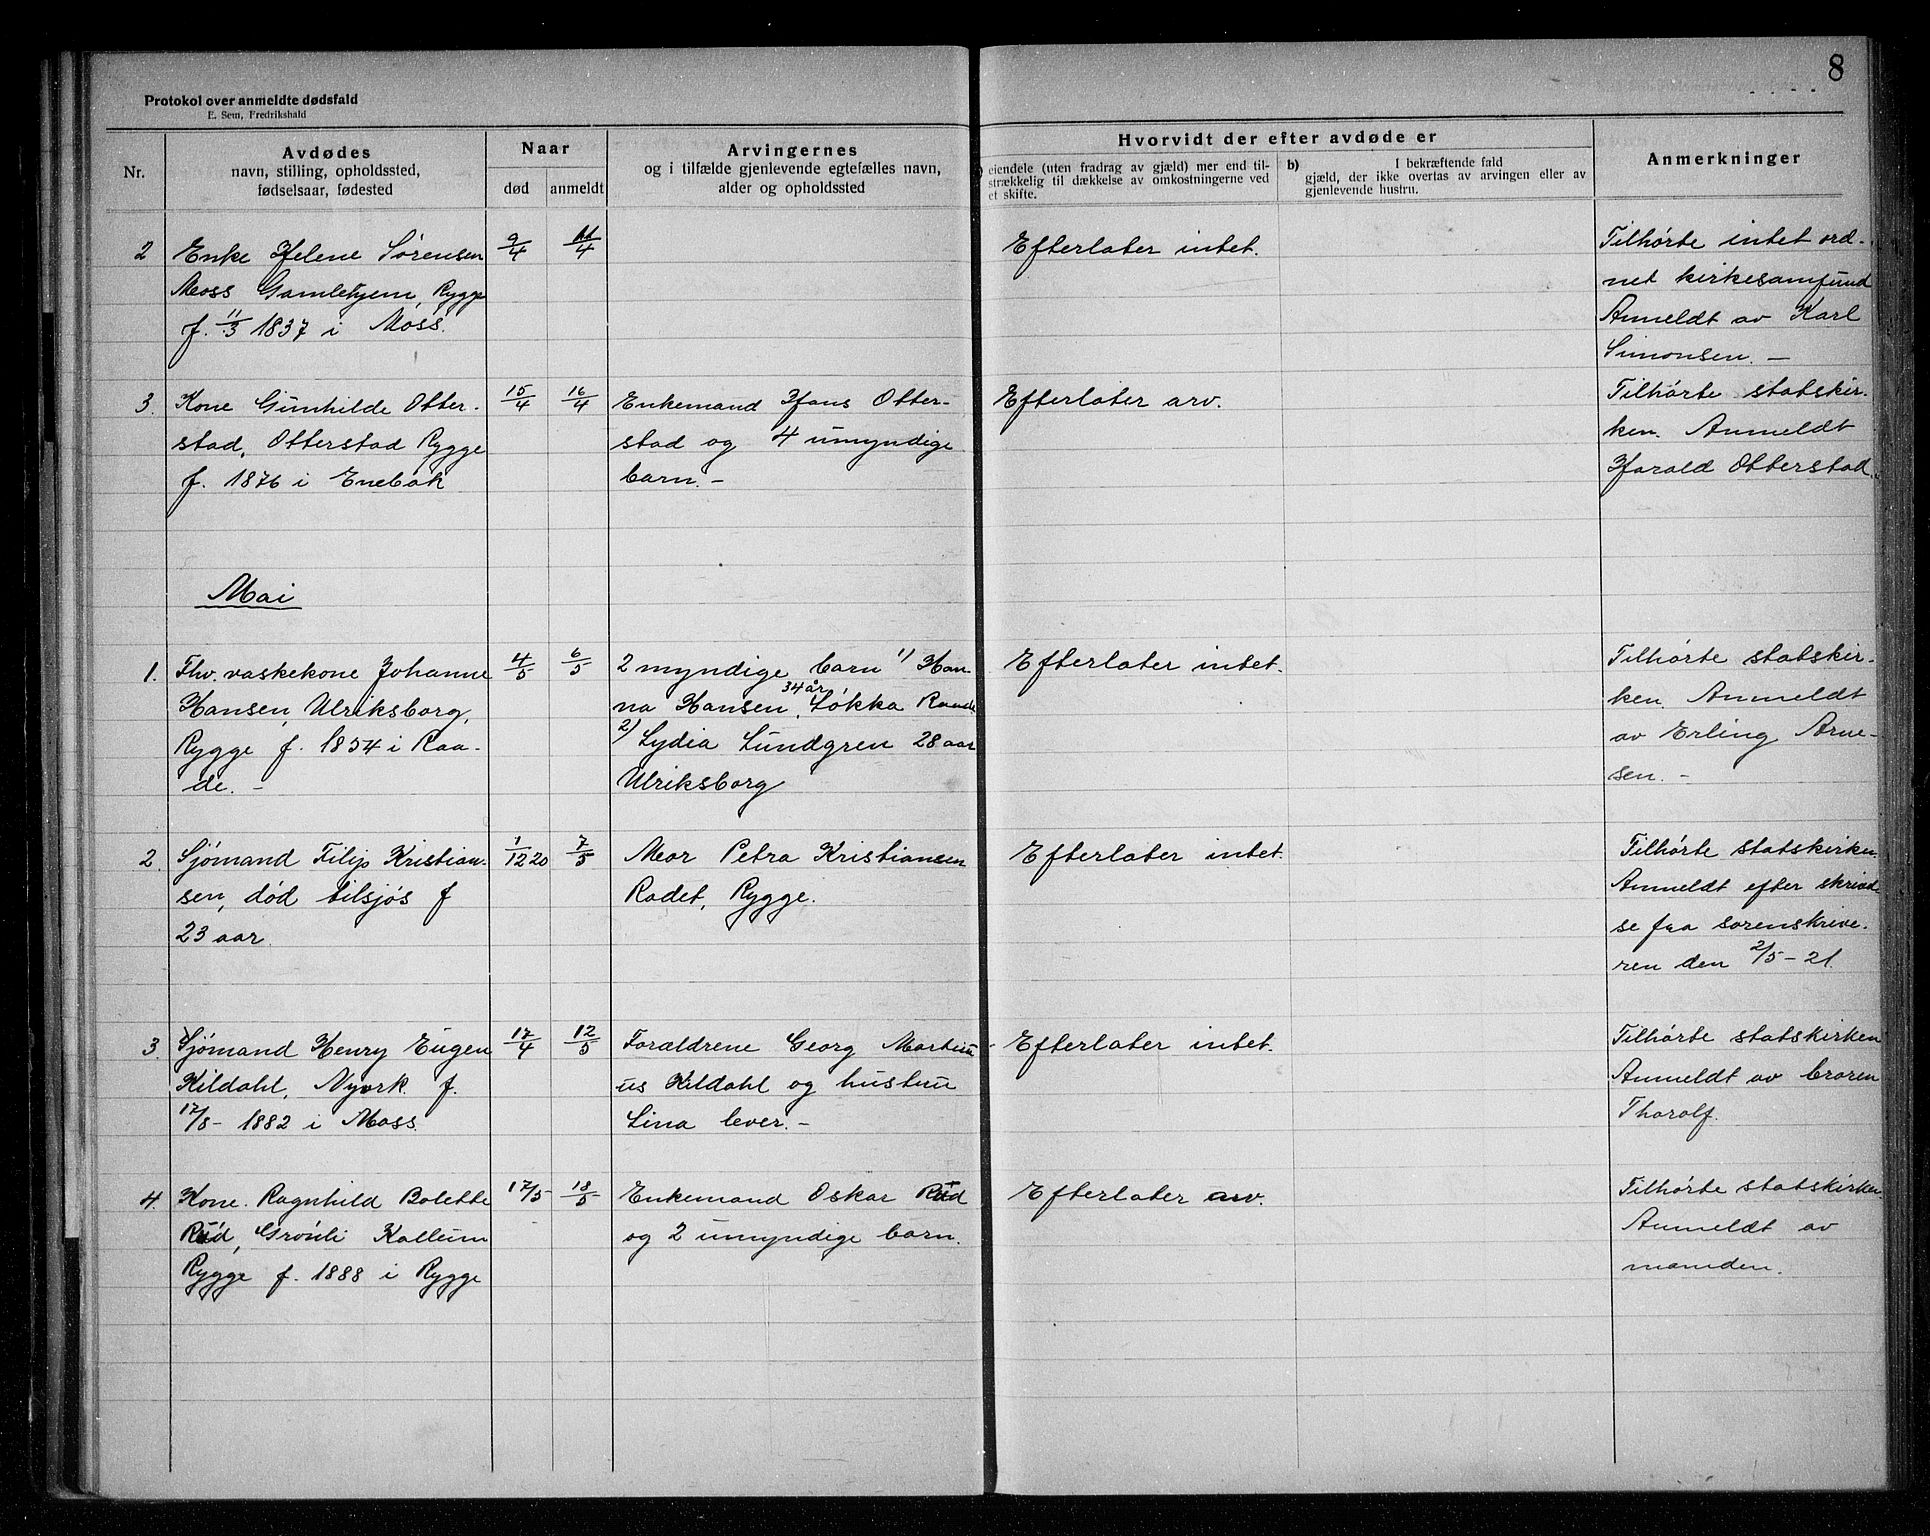 8
Protokol over anmeldte dødsfald
E. Sem, Fredrikshald
Nr.
Avdødes
navn, stilling, opholdssted,
fødselsaar, fødested
Naar
død
anmeldt
Arvingernes
og i tilfælde gjenlevende egtefælles navn,
alder og opholdssted
Hvorvidt der efter avdøde er
eiendele (uten fradrag av gjæld) mer end til-
strækkelig til dækkelse av omkostningerne ved
et skifte.
b) I bekræftende fald
gjæld, der ikke overtas av arvingen eller av
gjenlevende hustru.
Anmerkninger
2
Enke Helene Sørensen
Moss Gamlehjem, Rygge
f. 11/3 1837 i Moss.
9/4
11/4
Efterlater intet.
Tilhørte intet ord-
net kirkesamfund
Anmeldt av Karl
Simonsen. —
3.
Kone Gunhilde Otter-
stad, Otterstad Rygge
f. 1876 i Enebak
15/4
16/4
Enkemand Hans Otter-
stad og 4 umyndige
barn. —
Efterlater arv.
Tilhørte statskir-
ken. Anmeldt
Harald Otterstad.
Mai
1.
Fhv. vaskekone Johanne
Hansen, Ulriksborg,
Rygge f. 1854 i Raa-
de. —
4/5
6/5
2 myndige barn 1) Han-
na Hansen, 34 år Løkka Raade
2) Lydia Lundgren 28 aar
Ulriksborg
Efterlater intet.
Tilhørte statskir-
ken. Anmeldt
av Erling Arne-
sen. —
2.
Sjømand Filip Kristian-
sen, død tilsjøs f
23 aar.
1/12 20
7/5
Mor Petra Kristiansen
Rødet, Rygge.
Efterlater intet.
Tilhørte statskirken.
Anmeldt efter skrivel-
se fra sorenskrive-
ren den 2/5 - 21.
3.
Sjømand Henry Eugen
Kildahl, Nyørk. f.
17/8 - 1882 i Moss.
17/4
12/5
Forældrene Georg Martin-
us Kildahl og hustru
Lina lever. —
Efterlater intet.
Tilhørte statskirken
Anmeldt av broren
Thoralf.
4.
Kone. Ragnhild Bolette
Rød, Grønli Kallum
Rygge f. 1888 i Rygge
17/5
18/5
Enkemand Oskar Rød
og 2 umyndige barn.
Efterlater arv.
Tilhørte statskirken
Anmeldt av
manden.